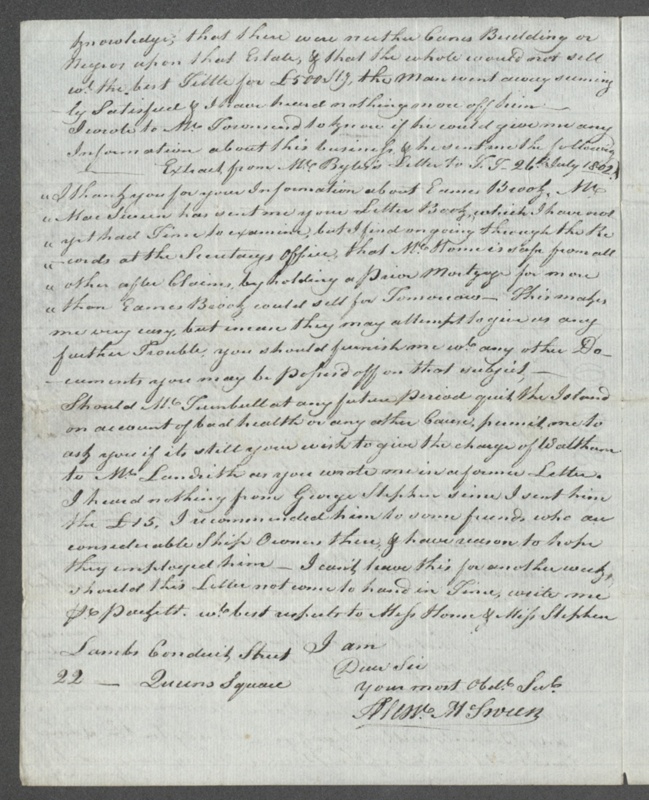 knowledge; that there were neither Canes Building or
Negros upon that Estate, & that the whole would not sell
wt. the best Tittle for £500 Stg, the Man went away seeming
ly Satisfied & I have heard nothing more off him —
I wrote to Mr. Townsend to know if he could give me any
Information about this business, & he sent me the following
Extract from Mr. Byles's Letter to J. T. 26th July 1802
"I thank you for your Information about Eames Brook, Mr.
" Mac Swein has sent me your Letter Book, which I have not
" yet had Time to examine, but I find on going through the Re
" cords at the Secretarys Office, that Mr. Home is safe from all
" other after Claims, by holding a prior Mortgage for more
" than Eames Brook could sell for Tomorrow — This makes
me very easy, but incase they may attempt to give us any
further Trouble, you should furnish me wt. any other Do-
-cuments you may be possess'd off on that subject —
Should Mr. Turnbull at any future period quit the Island
on account of bad health or any other Cause, permit me to
ask you if its still your wish to give the charge of Waltham
to Mr. Landrith as you wrote me in a former Letter.
I heard nothing from George Stephen since I sent him
the £15, I recommended him to some friends who are
considerable Ship Owners there, & have reason to hope
they employed him — I cant leave this for another week,
should this Letter not come to hand in Time, write me
Pr Packett. wt. best respects to Miss Home & Miss Stephen
Lambs Conduit Street
I am
Dear Sir
22 — Queens Square
Your most Obdt. Servt.
Alexr. McSween